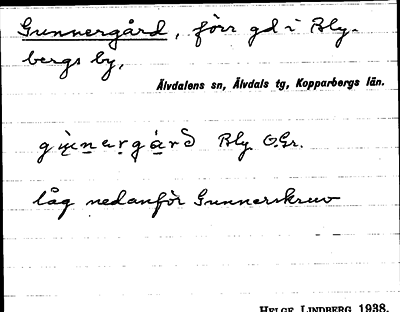 Gunnergård, förr gd i Bly-
bergs by,
Älvdalens sn, Älvdals tg, Kopparbergs län.
Bly O.Gr.
låg nedanför Gunnerskruv
HELGE LINDBERG 1938.